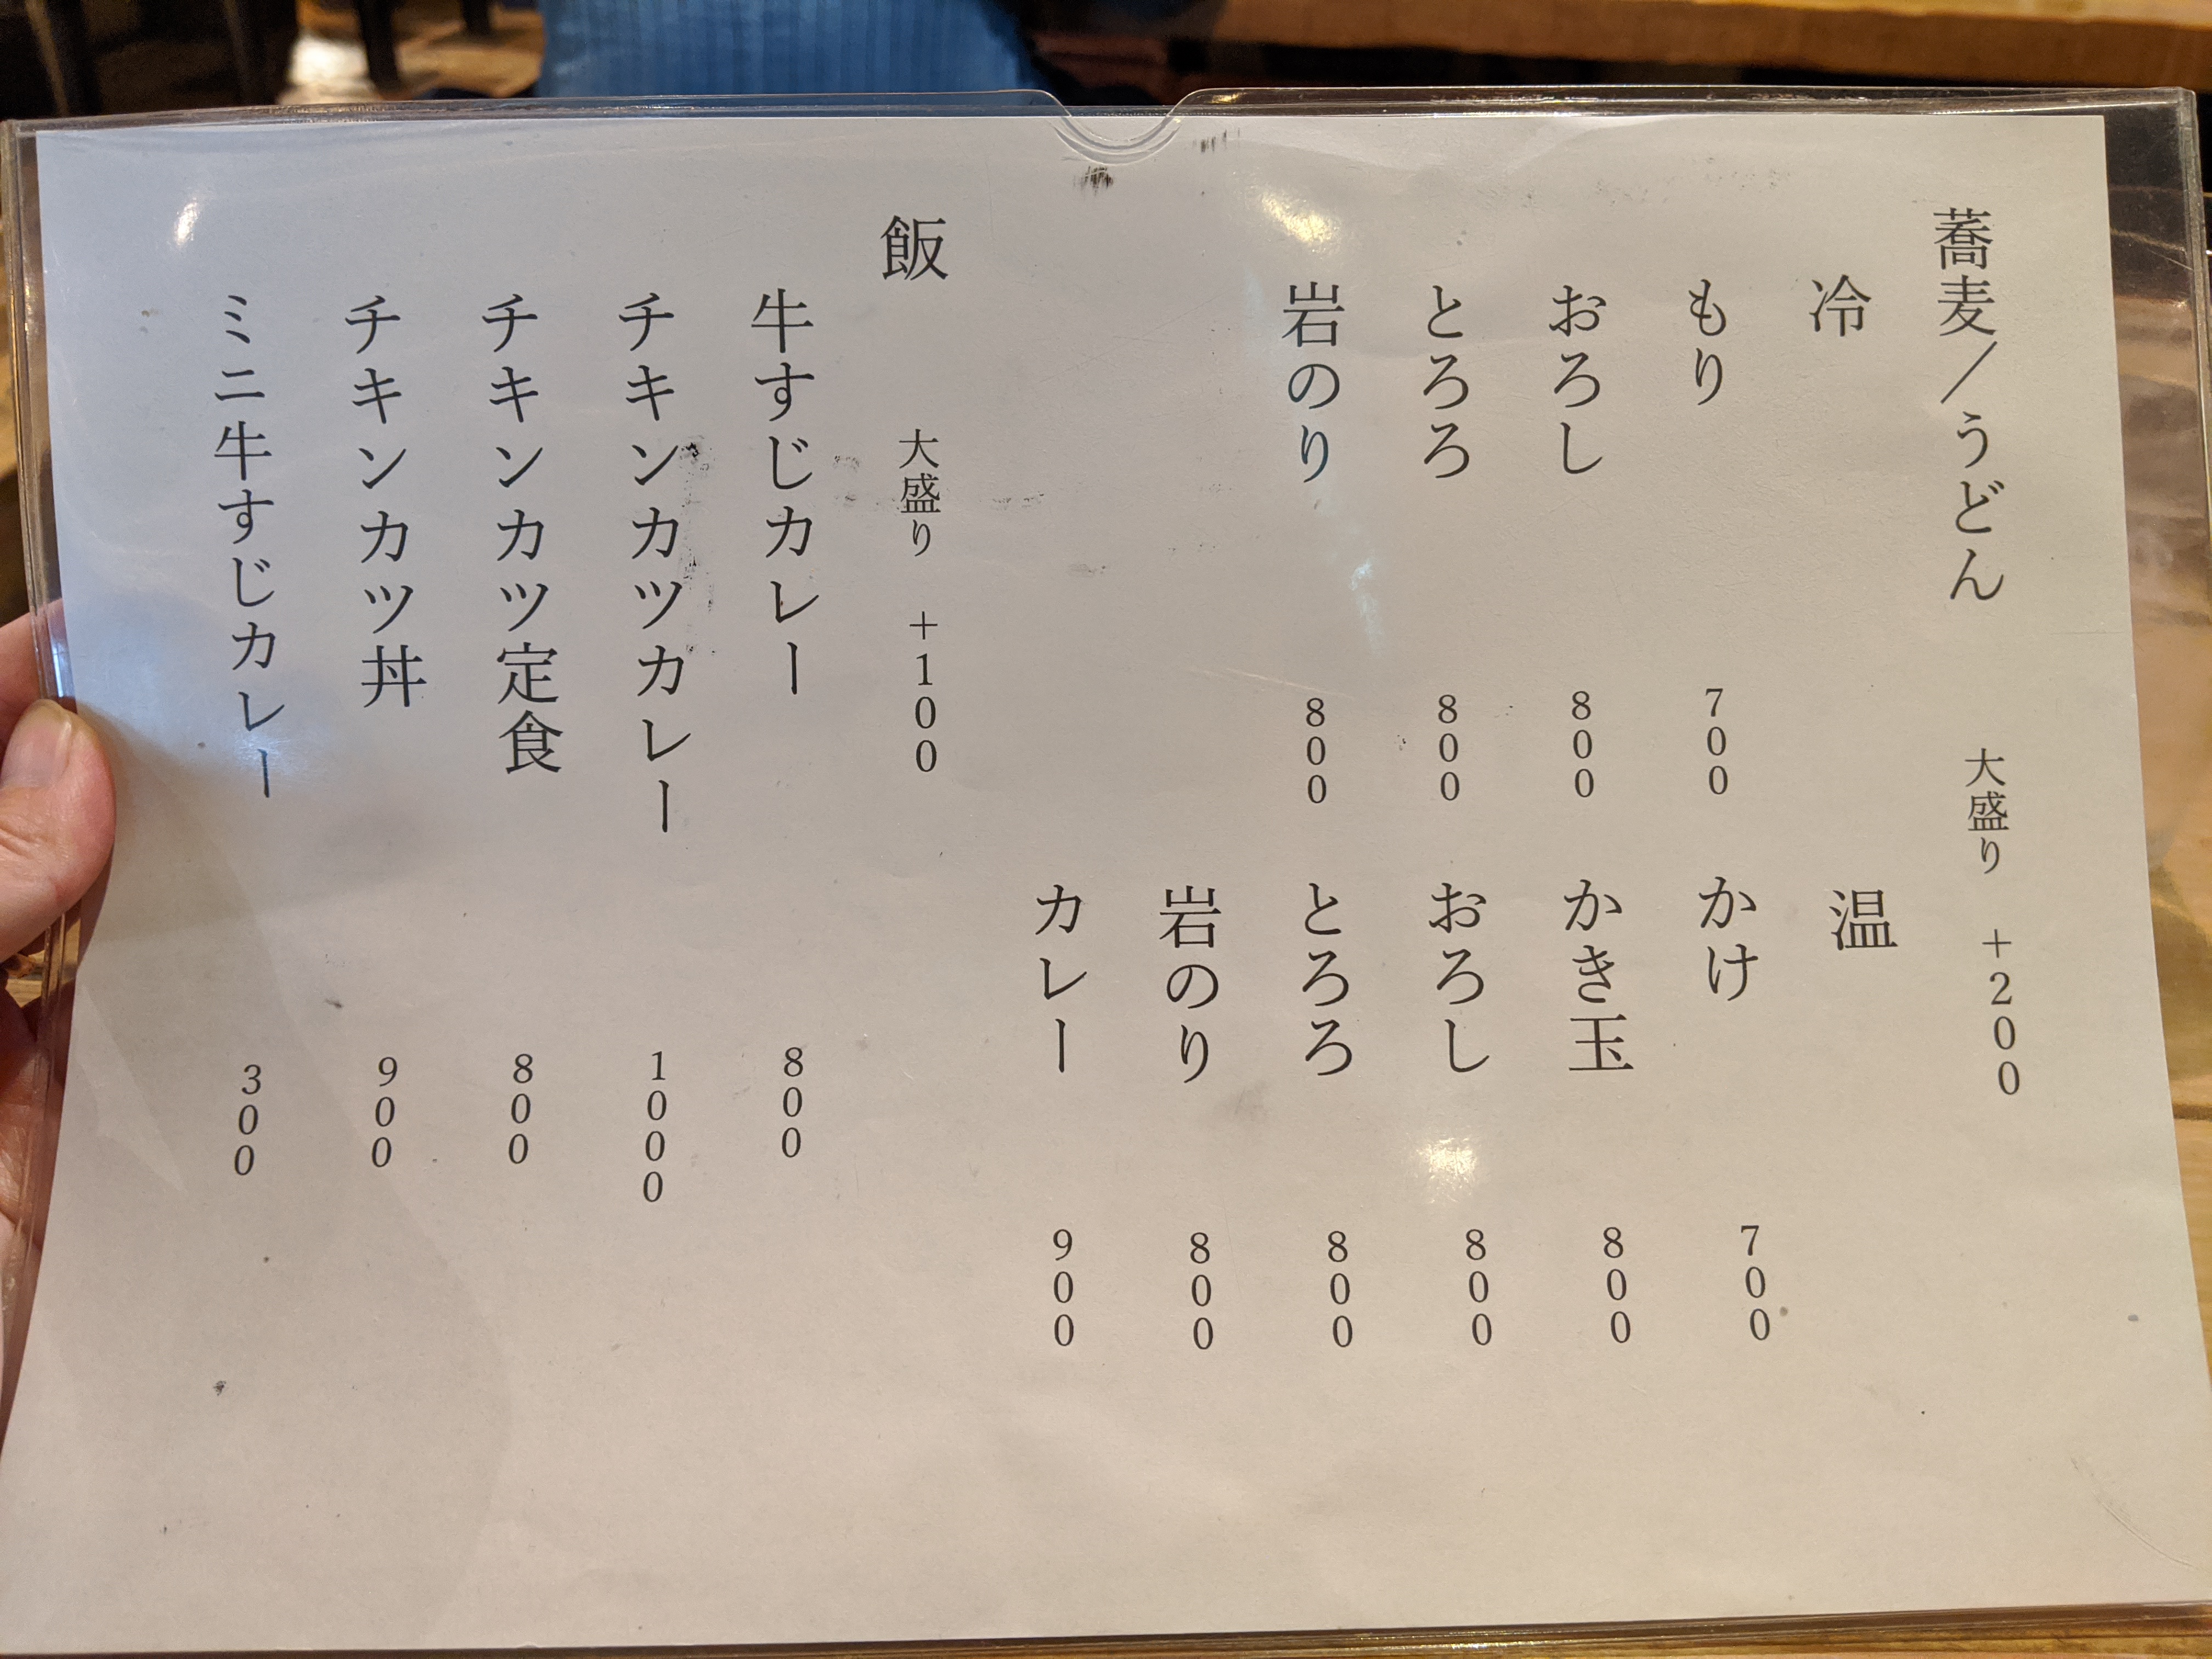 蕎麦／うどん　大盛り　+200
冷
もり　700
おろし　800
とろろ　800
岩のり　800
温
かけ　700
かき玉　800
おろし　800
とろろ　800
岩のり　800
カレー　900
飯　大盛り　+100
牛すじカレー　800
チキンカツカレー　1000
チキンカツ定食　800
チキンカツ丼　900
ミニ牛すじカレー　300